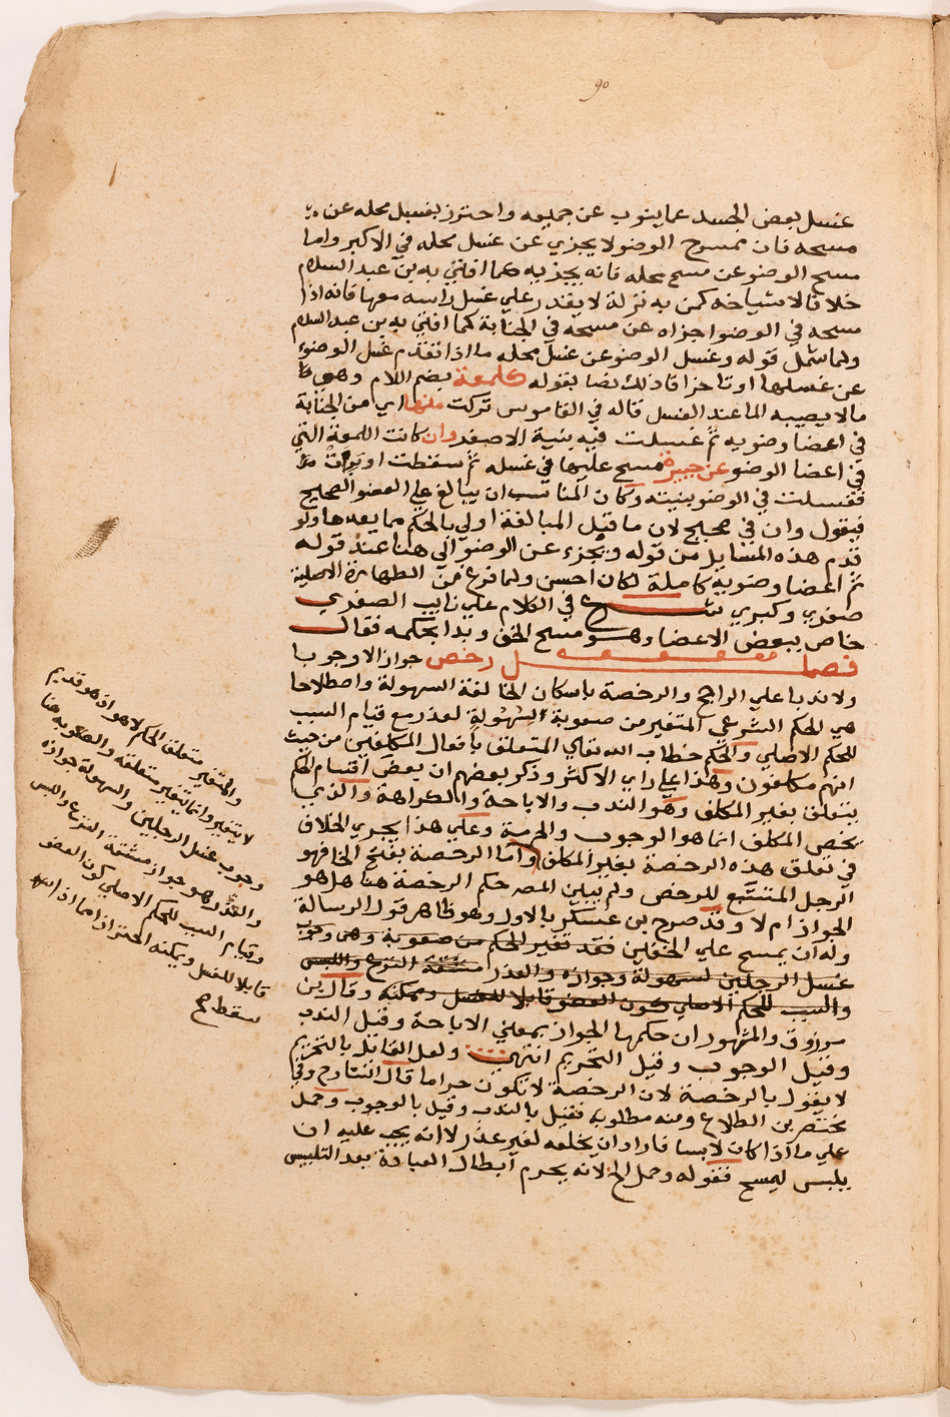 90
غسل بعض الجسد عما ينوب عن جميعه واحترز بغسل محله عن
مسحه فان ممسوح الوضو لا يجزي عن غسل محله في الاكبر واما
مسح الوضو عن مسح محله فانه يجزيه كما افتي به بن عبد السلام
خلافا لاشياخه كمن به نزلة لا يقدر علي غسل راسه معها فانه اذا
مسحه في الوضو اجزاه عن مسحه في الجنابة كما افتي به بن عبد السلام
ولما شمل قوله وغسل الوضو عن غسل محله ما اذا تقدم غسل الوضوء
عن غسلها او تاخر افاد ذلك نصا بقوله كلمعة بضم اللام وهي
ما لا يصيبه الما عند الغسل قاله في القاموس تركت منها اي من الجنابة
في اعضا وضويه ثم غسلت فيه بنية الاصغر وان كانت اللمعة التي
في اعضا الوضو عن جبيرة مسح عليها في غسله ثم سقطت او برات
فغسلت في الوضو بنيته وكان المناسب ان يبالغ علي العضو الصحيح
فيقول وان في صحيح لان ما قبل المبالغة اولي بالحكم مما بعدها ولو
قدم هذه المسايل من قوله ويجزء عن الوضو الي هنا عند قوله
ثم اعضا وضويه كاملة لكان احسن ولما فرغ من الطهارة الاصلية
صغري وكبري شرع في الكلام علي نايب الصغري
خاص ببعض الاعضا وهو مسح الخف وبدا بحكمه فقال
فصل رخص جوازا لا وجوبا
ولا ندبا علي الراجح والرخصة باسكان الخا لغة السهولة واصطلاحا
هي الحكم الشرعي المتغير من صعوبة لسهولة لعذر مع قيام السبب
للحكم الاصلي والحكم خطاب الله تعالي المتعلق بافعال المكلفين من حيث
انهم مكلفون وهذا علي راي الاكثر وذكر بعضهم ان بعض اقسام الحكم
يتعلق بغير المكلف وهو الندب والاباحة والكراهة والذي
يخص المكلف انما هو الوجوب والحرمة وعلي هذا يجري الخلاف
في تعلق هذه الرخصة بغير المكلف واما الرخصة بفتح الخا فهو
الرجل المتتبع للرخص ولم يبين المص حكم الرخصة هنا هل هو
الجواز ام لا وقد صرح بن عسكر بالاول وهو ظاهر قول الرسالة
وله ان يمسح علي الخفين فقد تغير الحكم من صعوبة وهي وجوب
غسل الرجلين لسهولة وجوازه والعذر مشقة النزع واللبس
والسبب للحكم الاصلي كون العضو قابلا للغسل ويمكنه وقال بن
مرزوق والمشهور ان حكمها الجواز بمعني الاباحة وقيل الندب
وقيل الوجوب وقيل التحريم انتهي ولعل القايل بالتحريم
لا يقول بالرخصة لان الرخصة لا تكون حراما قال الشارح وفي
مختصر بن الطلاع ومنه مطلوب فقيل بالندب وقيل بالوجوب وحمل
علي ما اذا كان لابسا فاراد ان يخلعه لغير عذر لا انه يجب عليه ان
يلبس ليمسح فقوله وحمل الخ لانه يحرم ابطال العبادة بعد التلبيس
والمتغير متعلق الحكم لا هو اذ هو قديم
لا يتغير وانما يتغير متعلقه والصعوبة هنا
وجوب غسل الرجلين والسهولة جوازه
والعذر هو جواز مشقة النزع واللبس
وقيام السبب للحكم الاصلي كون العضو
قابلا للغسل ويمكنه احترازا مما اذا
سقط صح